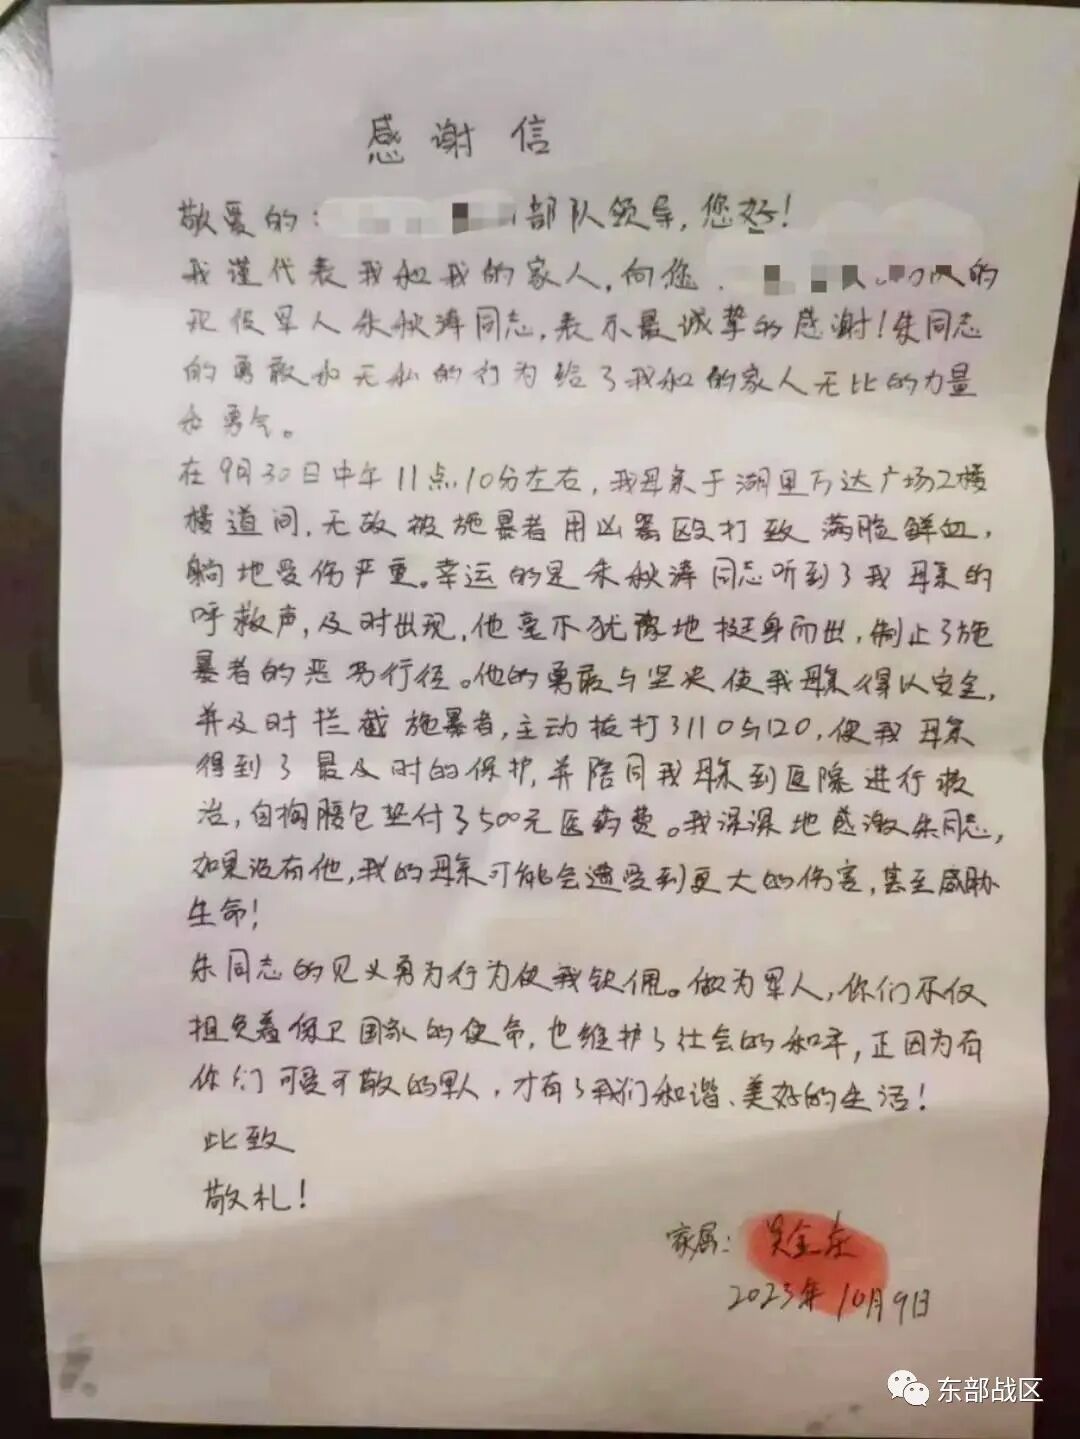 感谢信
敬爱的：部队领导，您好！
我谨代表我和我的家人，向您、的
现役军人朱秋涛同志，表示最诚挚的感谢！朱同志
的勇敢和无私的行为给了我和的家人无比的力量
和勇气。
在9月30日中午11点10分左右，我母亲于湖里万达广场2楼
楼道间，无故被施暴者用凶器殴打致满脸鲜血，
躺地受伤严重。幸运的是朱秋涛同志听到了我母亲的
呼救声，及时出现，他毫不犹豫地挺身而出，制止了施
暴者的恶劣行径。他的勇敢与坚决使我母亲得以安全，
并及时拦截施暴者，主动拨打了110与120，使我母亲
得到了最及时的保护，并陪同我母亲到医院进行救
治，自掏腰包垫付了500元医药费。我深深地感激朱同志，
如果没有他，我的母亲可能会遭受到更大的伤害，甚至威胁
生命！
朱同志的见义勇为行为使我钦佩。做为军人，你们不仅
担负着保卫国家的使命，也维护了社会的和平，正因为有
你们可爱可敬的军人，才有了我们和谐、美好的生活！
此致
敬礼！
家属：吴金
2023年10月9日
东部战区